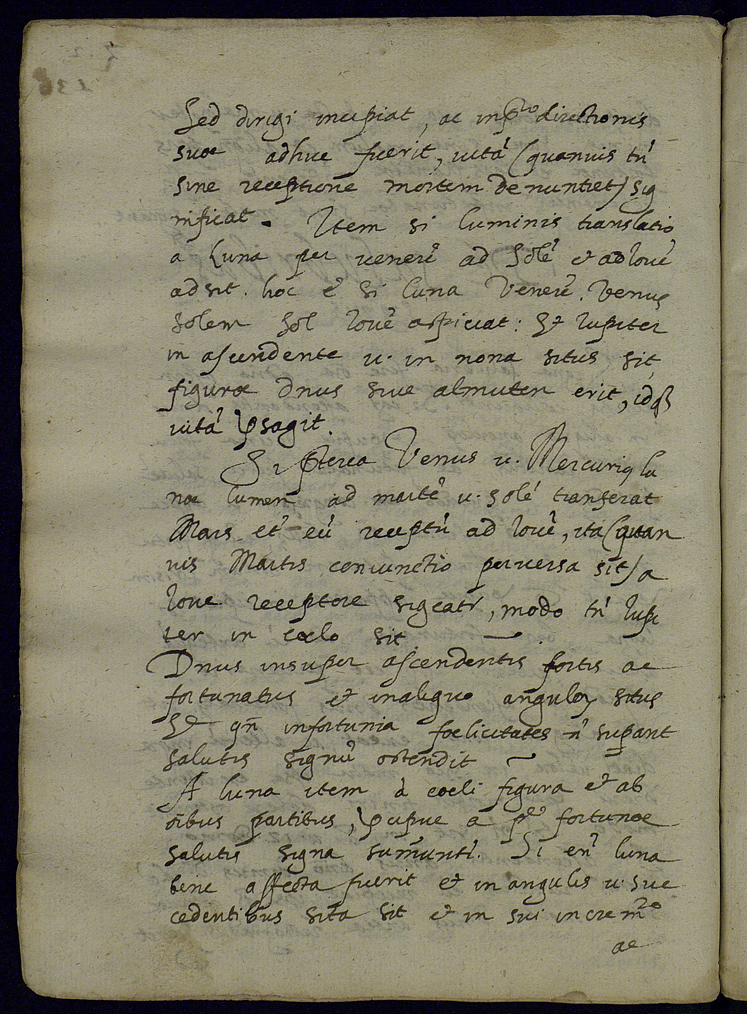 Sed dirigi incipiat, ac in pr̄io directionis
suae adhuc fuerit, uitā (quamuis tn̄
sine receptione mortem denuntiet) sig
nificat. Item si luminis translatio
a Luna per venerē ad Solē et ad Iouē
adsit. hoc ē si luna Venerē. Venus
Solem Sol Iouē aspiciat: Et Iupiter
in ascendente u. in nona situs sit
figurae Dnus siue almuten erit, idq̄
uitā p̄sagit.
Si p̄terea Venus u. Mercurius lu
nae lumen ad martē u. solē transferat
Mars et̄ eū receptū ad Iouē, ita (quam
uis Martis coniunctio peruersa sit) a
Ioue receptore sigcatr̄, modo tn̄ Iupi
ter in coelo sit
Dnus insuper ascendentis fortis ac
fortunatus et in aliquo angulor̄ situs
Et qn̄ infortunia foelicitates n̄ supant
salutis signū ostendit
A luna item à coeli figura et ab
oībus partibus, p̄cipue a p̄te fortunae
salutis signa sumuntr̄. Si en̄ luna
bene affecta fuerit et in angulis u. suc
cedentibus sita sit et in sui increm̄to
ac